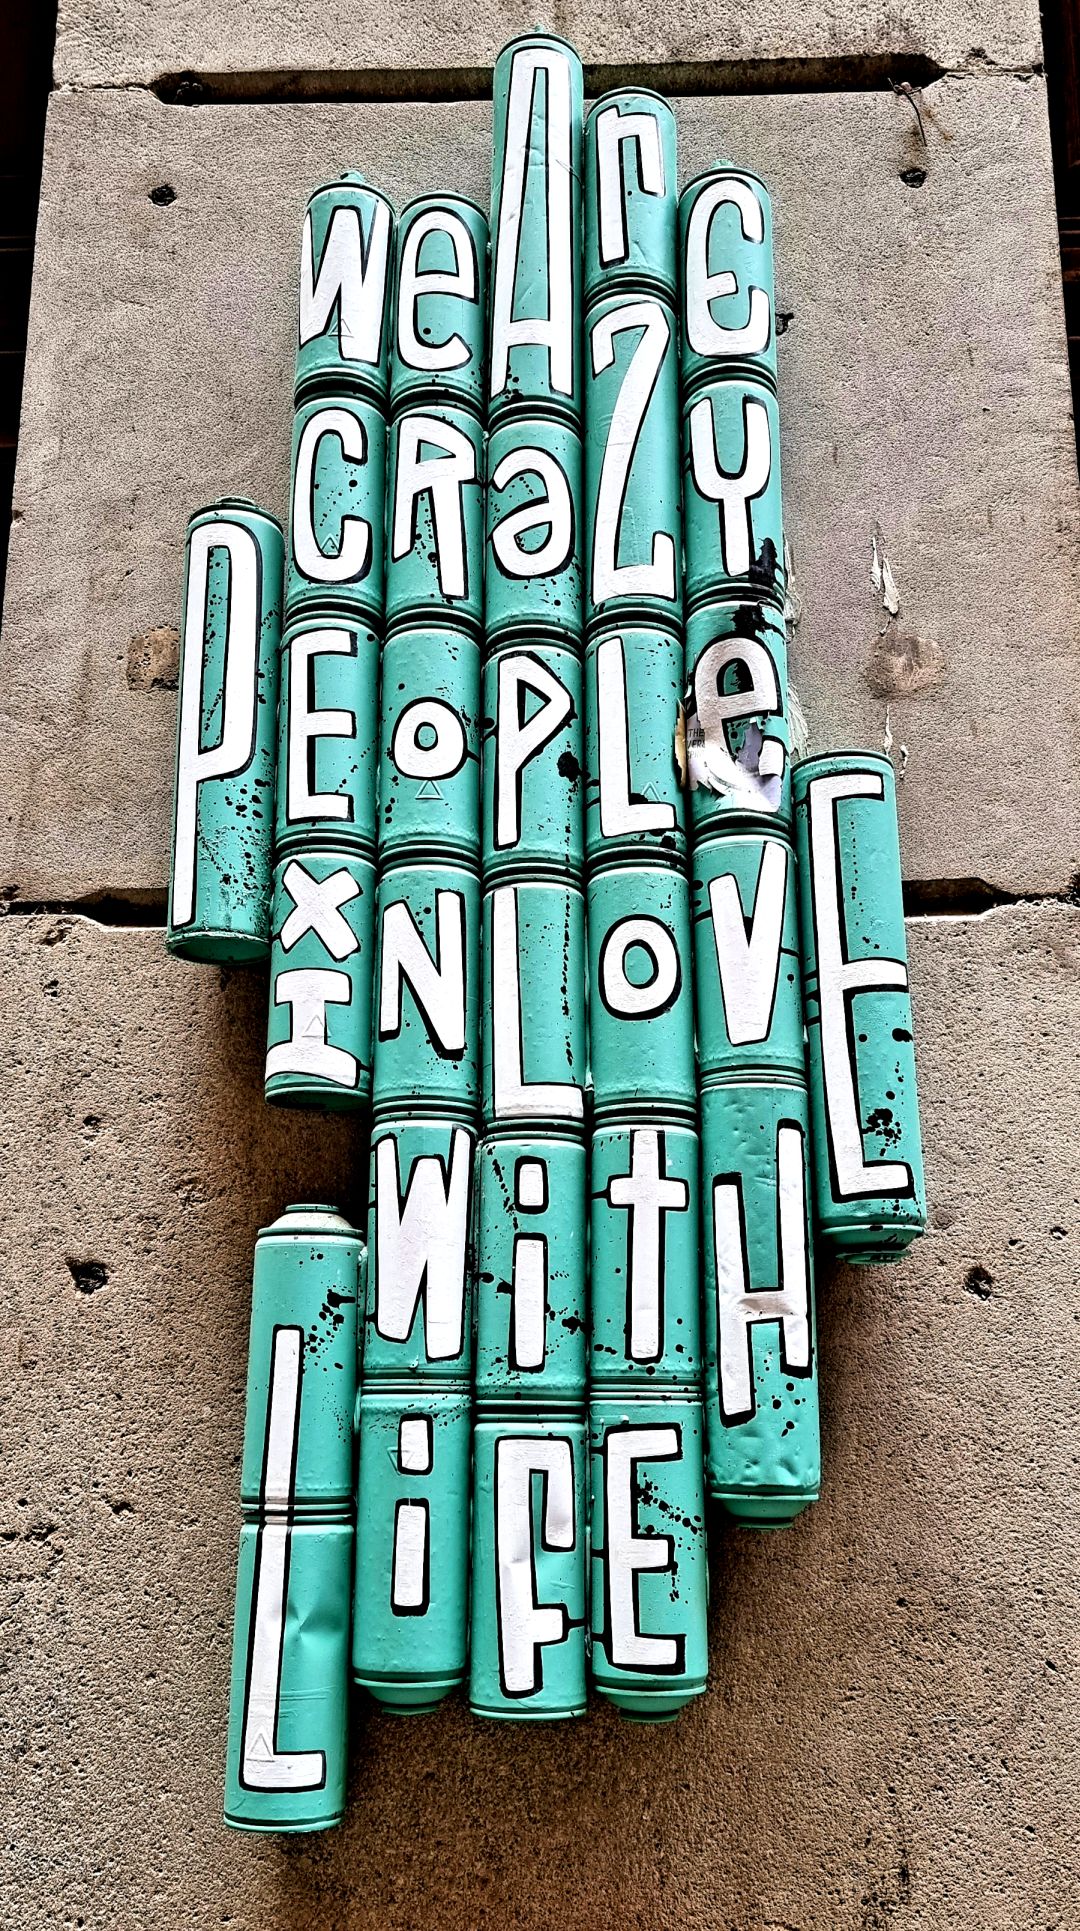 we Are
CRaZy
PEoPLe
x IN LoVE
WitH
LiFE
THE